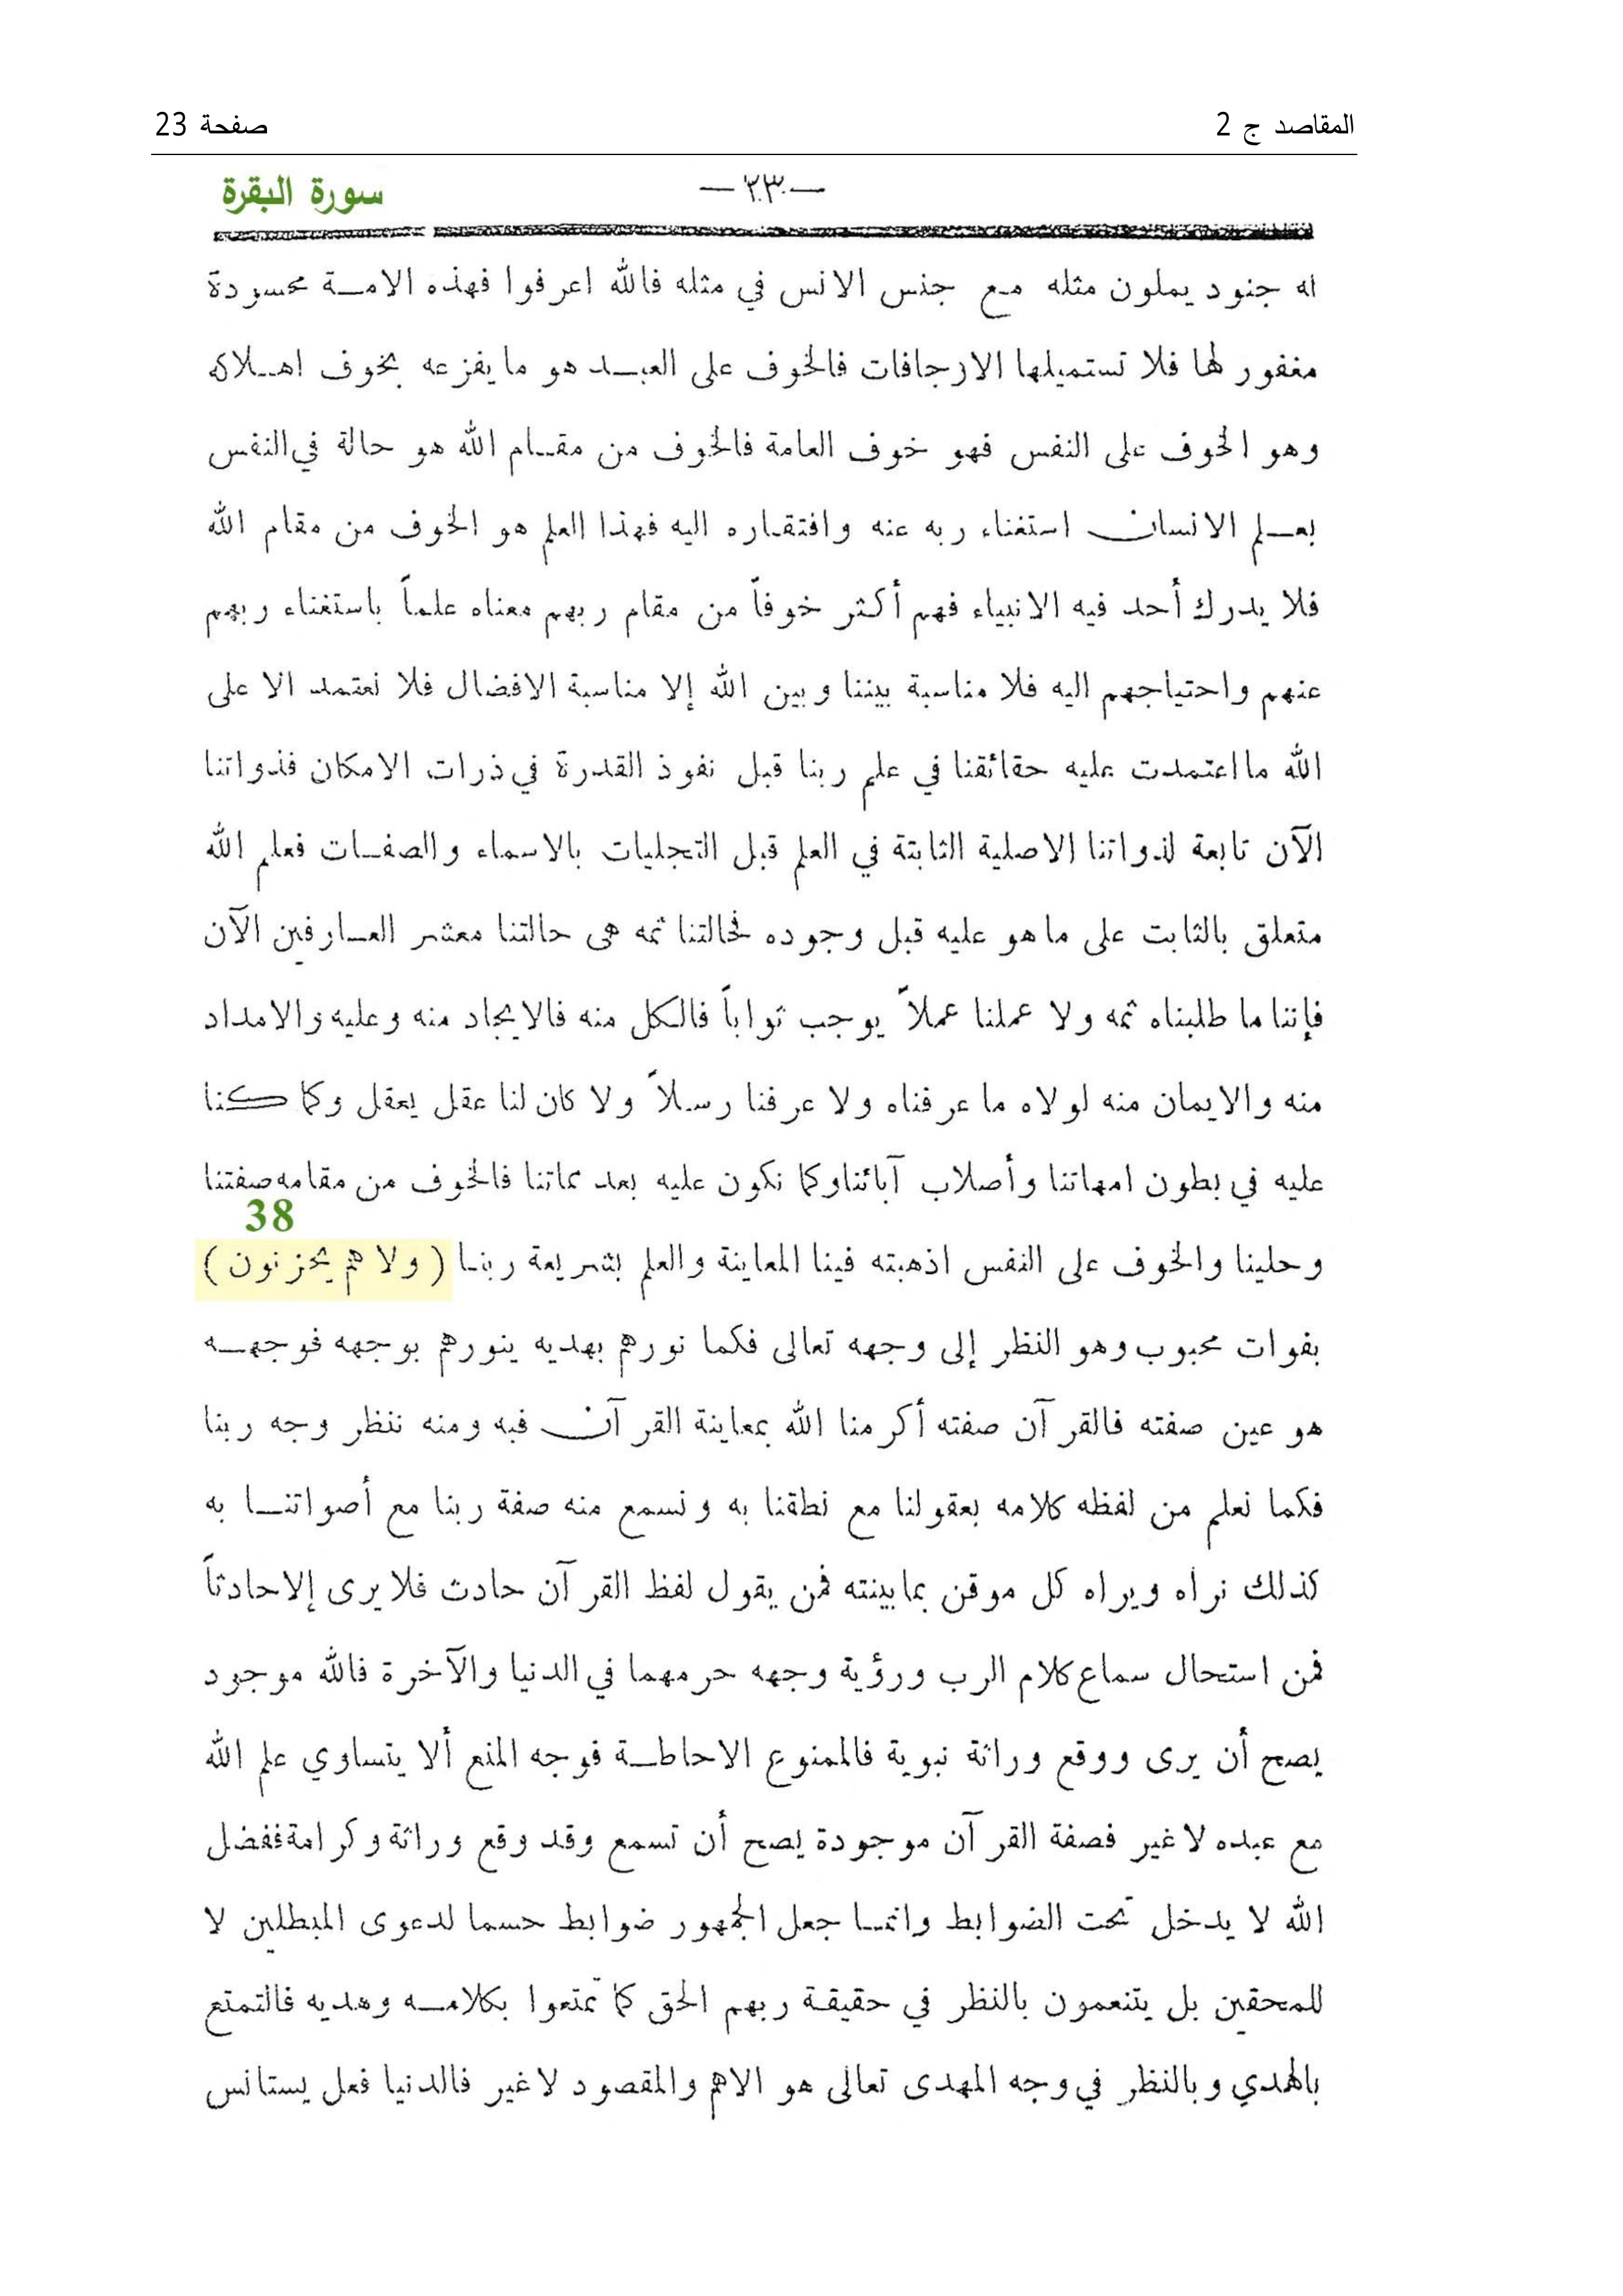 المقاصد ج 2
صفحة 23
سورة البقرة
— ٢٣ —
له جنود يملون مثله مع جنس الانس في مثله فالله اعرفوا فهذه الامة محسودة
مغفور لها فلا تستميلها الارجافات فالخوف على العبد هو ما يفزعه بخوف اهلاكه
وهو الخوف على النفس فهو خوف العامة فالخوف من مقام الله هو حالة في النفس
بعلم الانسان استغناء ربه عنه وافتقاره اليه فهذا العلم هو الخوف من مقام الله
فلا يدرك أحد فيه الانبياء فهم أكثر خوفاً من مقام ربهم معناه علماً باستغناء ربهم
عنهم واحتياجهم اليه فلا مناسبة بيننا وبين الله إلا مناسبة الافضال فلا نعتمد الا على
الله ما اعتمدت عليه حقائقنا في علم ربنا قبل نفوذ القدرة في ذرات الامكان فذواتنا
الآن تابعة لذواتنا الاصلية الثابتة في العلم قبل التجليات بالاسماء والصفات فعلم الله
متعلق بالثابت على ما هو عليه قبل وجوده فحالتنا ثمه هى حالتنا معشر العارفين الآن
فإننا ما طلبناه ثمه ولا عملنا عملاً يوجب ثواباً فالكل منه فالايجاد منه وعليه والامداد
منه والايمان منه لولاه ما عرفناه ولا عرفنا رسلاً ولا كان لنا عقل يعقل وكما كنا
عليه في بطون امهاتنا وأصلاب آبائنا وكما نكون عليه بعد مماتنا فالخوف من مقامه صفتنا
38
وحلينا والخوف على النفس اذهبته فينا المعاينة والعلم بشريعة ربنا ( ولا هم يحزنون )
بفوات محبوب وهو النظر إلى وجهه تعالى فكما نورهم بهديه ينورهم بوجهه فوجهه
هو عين صفته فالقرآن صفته أكرمنا الله بمعاينة القرآن فبه ومنه ننظر وجه ربنا
فكما نعلم من لفظه كلامه بعقولنا مع نطقنا به ونسمع منه صفة ربنا مع أصواتنا به
كذلك نراه ويراه كل موقن بما بينته فمن يقول لفظ القرآن حادث فلا يرى إلا حادثاً
فمن استحال سماع كلام الرب ورؤية وجهه حرمهما في الدنيا والآخرة فالله موجود
يصح أن يرى ووقع وراثة نبوية فالممنوع الاحاطة فوجه المنع ألا يتساوي علم الله
مع عبده لا غير فصفة القرآن موجودة يصح أن تسمع وقد وقع وراثة وكرامة ففضل
الله لا يدخل تحت الضوابط وانما جعل الجمهور ضوابط حسما لدعوى المبطلين لا
للمحقين بل يتنعمون بالنظر في حقيقة ربهم الحق كما تمتعوا بكلامه وهديه فالتمتع
بالهدي وبالنظر في وجه المهدى تعالى هو الاهم والمقصود لا غير فالدنيا فعل يستانس